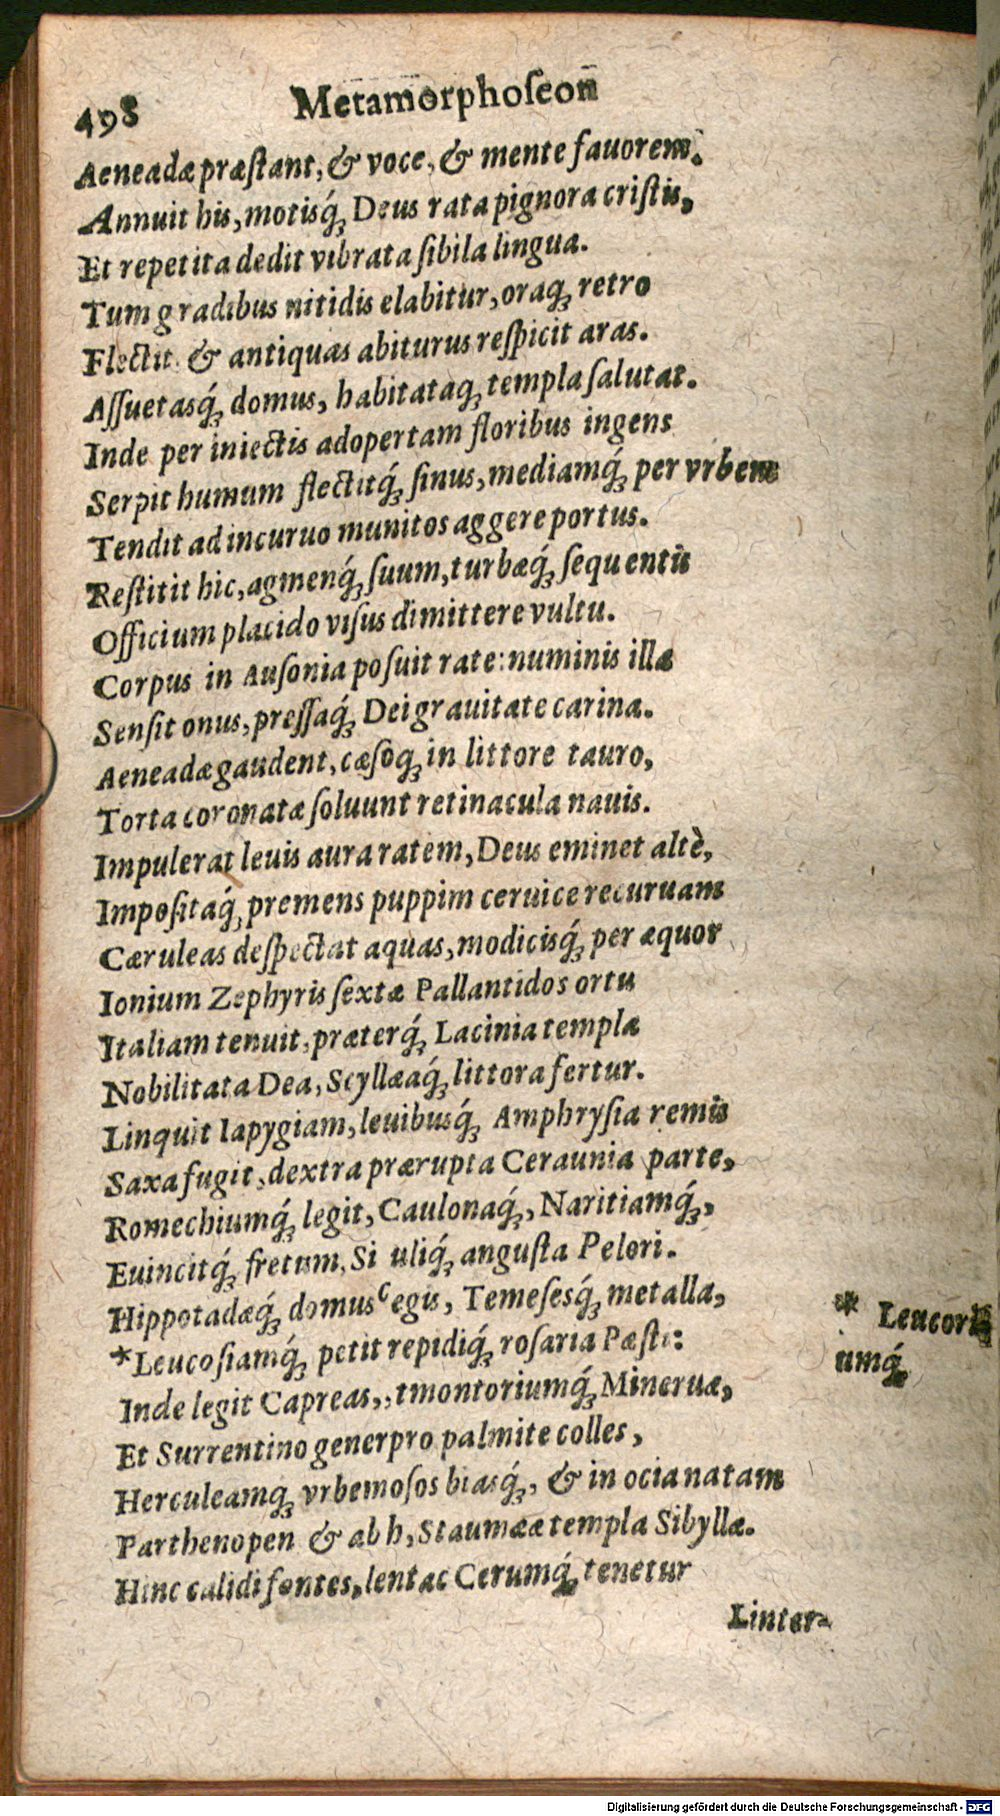 498 Metamorphoſeon
Aeneadæ præſtant, & voce, & mente fauorem.
Annuit his, motisq́; Deus rata pignora criſtis,
Et repetita dedit vibrata ſibila lingua.
Tum gradibus nitidis elabitur, oraq; retro
Flectit. & antiquas abiturus reſpicit aras.
Aſſuetasq́; domus, habitataq; templa ſalutat.
Inde per iniectis adopertam floribus ingens
Serpit humum flectitq́; ſinus, mediamq́; per vrbem
Tendit ad incuruo munitos aggere portus.
Reſtitit hic, agmenq́; ſuum, turbæq́; ſequentis
Officium placido viſus dimittere vultu.
Corpus in Auſonia poſuit rate: numinis illa
Senſit onus, preſſaq́; Dei grauitate carina.
Aeneadæ gaudent, cæſoq; in littore tauro,
Torta coronatæ ſoluunt retinacula nauis.
Impulerat leuis aura ratem, Deus eminet altè,
Impoſitaq́; premens puppim ceruice recuruam
Cæruleas deſpectat aquas, modicisq́; per æquor
Ionium Zephyris ſextæ Pallantidos ortu
Italiam tenuit, præterq́; Lacinia templa
Nobilitata Dea, Scyllæaq́; littora fertur.
Linquit Iapygiam, leuibusq́; Amphryſia remis
Saxa fugit, dextra prærupta Ceraunia parte,
Romechiumq́; legit, Caulonaq́;, Naritiamq́;,
Euincitq́; fretum, Si uliq́; anguſta Pelori.
Hippotadæq́; domus egis, Temeſesq́; metalla,
*Leucoſiamq́; petit repidiq́; roſaria Pæſti:
Inde legit Capreas,, tmontoriumq́; Mineruæ,
Et Surrentino generpro palmite colles,
Herculeamq; vrbemoſos biasq́;, & in ocia natam
Parthenopen & ab h, Staumææ templa Sibyllæ.
Hinc calidi fontes, lentac Cerumq́; tenetur
Linter-
* Leucori
umq́;
Digitalisierung gefördert durch die Deutsche Forschungsgemeinschaft - DFG